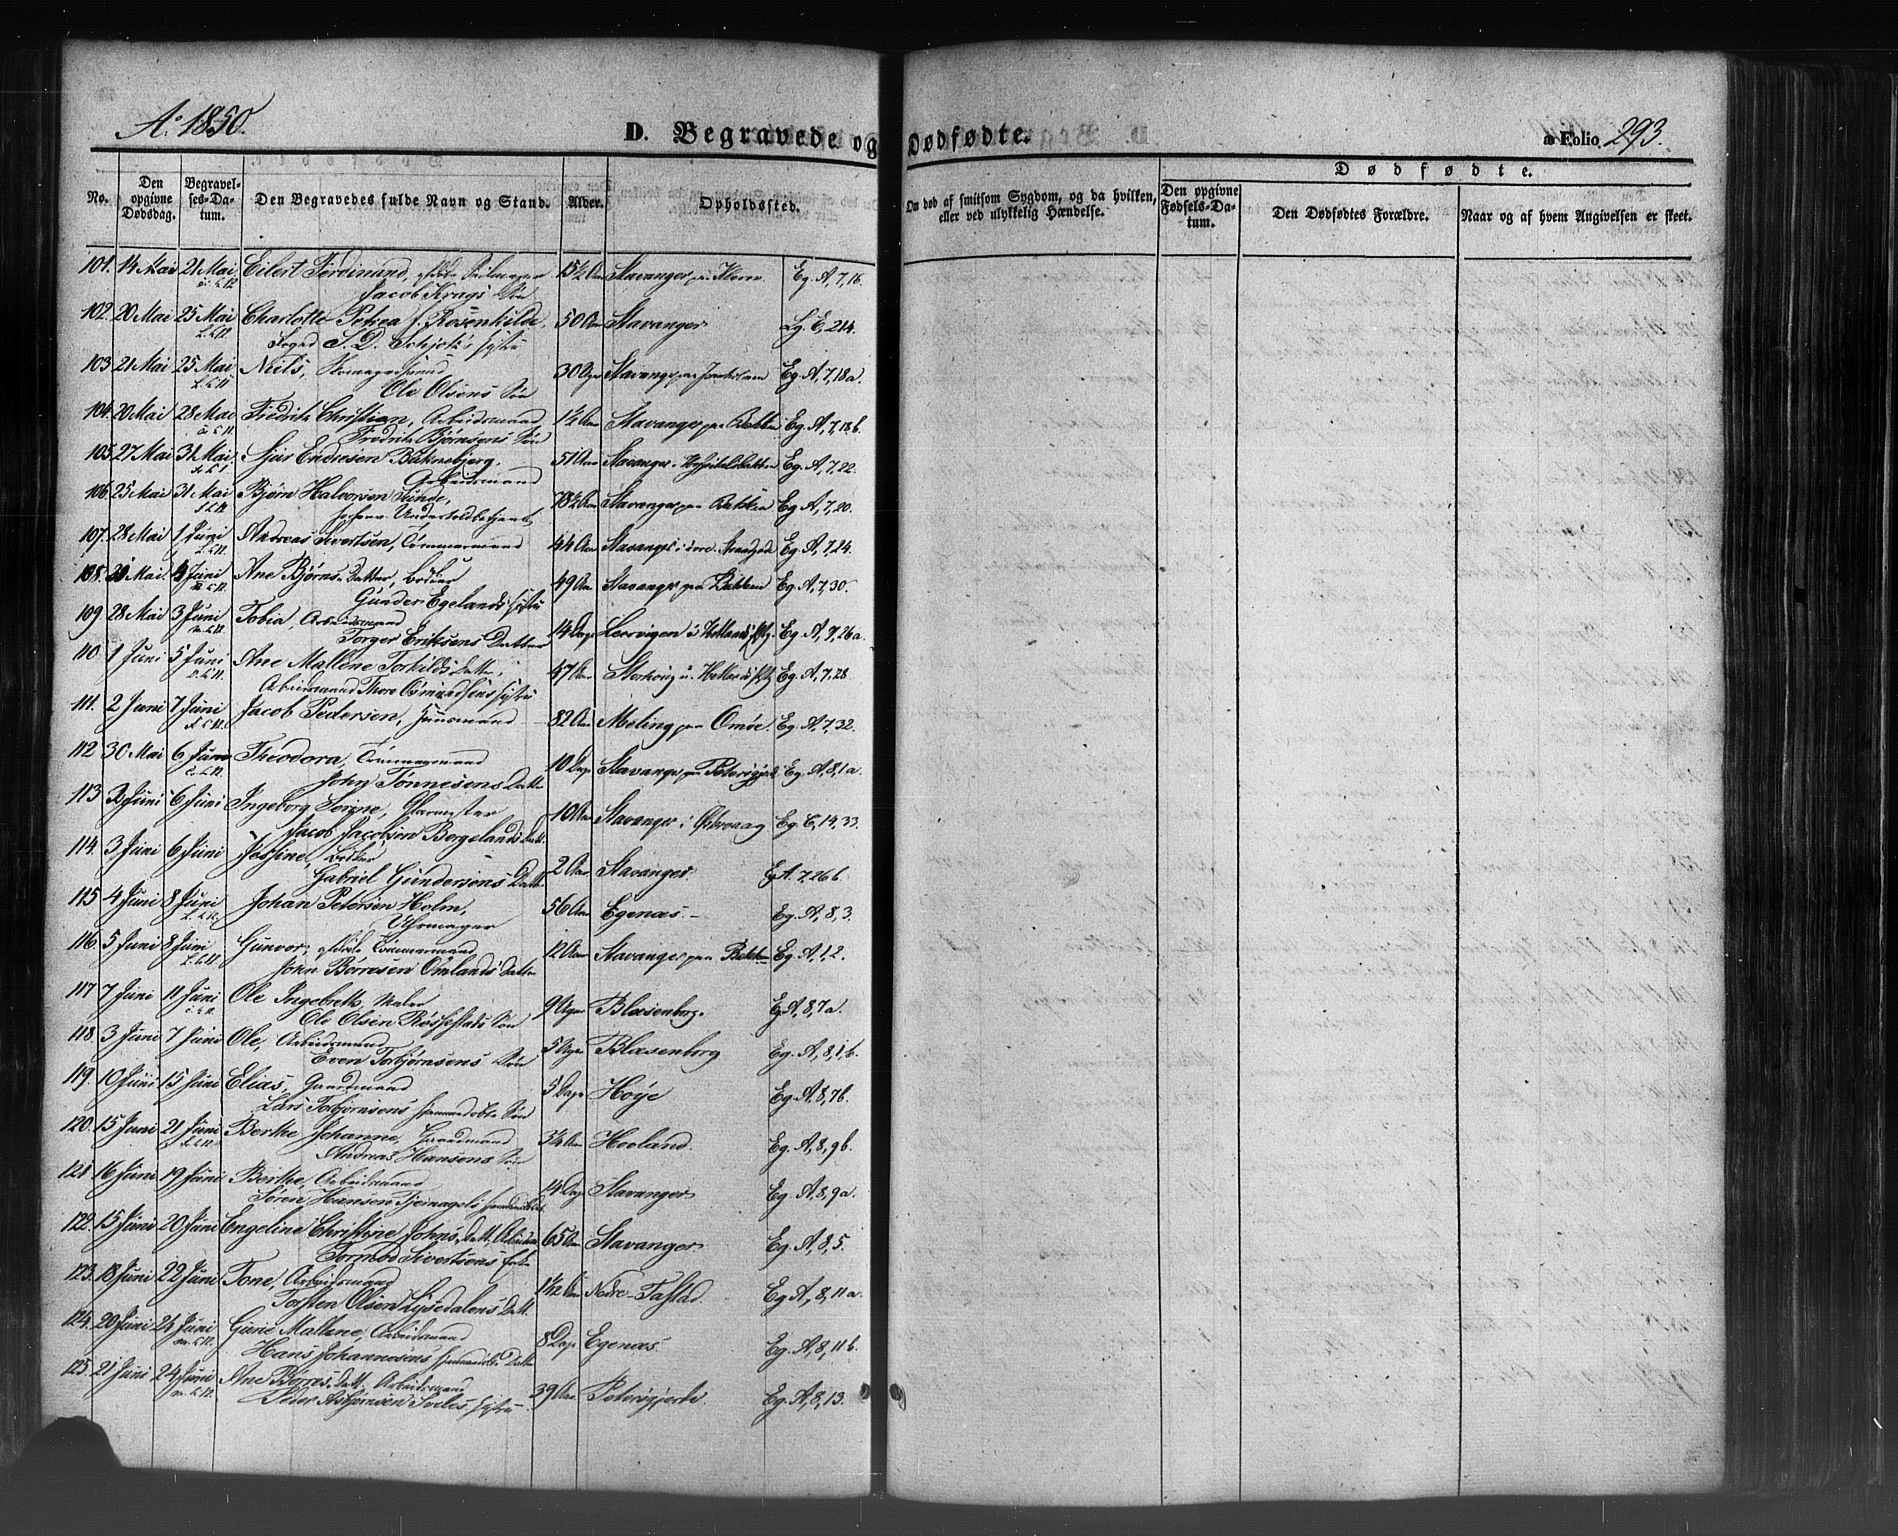 A.o 1850.
D. Begravede og Dødfødte.
a Folio 293.
No.
Den opgivne Dødsdag.
Begravelses-Datum.
Den Begravedes fulde Navn og Stand.
Alder.
Opholdssted.
Om død af smitsom Sygdom, og da hvilken, eller ved ulykkelig Hændelse.
Dødfødte.
Den opgivne Fødsels-Datum.
Den Dødfødtes Forældre.
Naar og af hvem Angivelsen er skeet.
101. 14 Mai 21 Mai Eilert Ferdinand, 15½ Aar Stavanger Eg. A, 7, 16.
Jacob Krags Søn
102. 20 Mai 25 Mai Charlotte Petrea f. Rosenkilde, 50 Aar Stavanger Lg. E, 214.
Foged S. D. Schjøtz's
103. 21 Mai 25 Mai Niels, 30 Stavanger Eg. A, 7, 18a.
Ole Olsens Søn
104. 20 Mai 28 Mai Fredrik Christian, Arbeidsmand 1½ Aar Stavanger paa Bakken Eg. A, 7, 18b.
Fredrik Bjørnsens Søn
105. 27 Mai 31 Mai Endresen 51 Aar Stavanger Eg. A, 7, 22.
Arbeidsmand
106. 25 Mai 31 Mai Bjørn Halvorsen Sunde, 78½ Aar Stavanger paa Bakken Eg. A, 7, 20.
107. 28 Mai 1 Juni Andreas Sivertsen, Tømmermand 44 Aar Stavanger Eg. A, 7, 24.
108. Mai 4 Juni Ane Bjørns Datter, Bødker 49 Aar Stavanger paa Bakken Eg. A, 7, 30.
Gunder Egelands
109. 28 Mai 3 Juni Tobia, Arbeidsmand 14 Dage Leervigen i Hetlands Eg. A, 7, 26a.
Torger Eriksens Datter
110. 1 Juni 5 Juni Ane Mallene Torkilds Datter, 47 Aar Storhoug i Hetlands Eg. A, 7, 28
Arbeidsmand Thore Osmundsens
111. 2 Juni 7 Juni Jacob Pedersen, Huusmand 82 Aar Meling paa Omøe. Eg. A, 7, 32.
112 30 Mai 6 Juni Theodora, Tømmermand 10 Dage Stavanger paa Pedersgjerde Eg. A, 8, 1a.
John Tønnesens Datter
113 Juni 6 Juni Ingeborg Serine, 10 Aar Stavanger i Østervaag Eg. C, 14, 33.
Jacob Jacobsen Borgelands Datt.
114. 3 Juni 6 Juni Jossine, Bødker 2 Aar Stavanger. Eg. A. 7, 26b.
Gabriel Gundersens Datt.
115 4 Juni 8 Juni Johan Petersen Holm, 56 Aar Egenæs. Eg. A, 8, 3.
Uhrmager
116. 5 Juni 8 Juni Gunvor, Tømmermand 12 Aar Stavanger paa Bakken Eg. A, 1, 2.
John Børresen Omlands Datter
117 7 Juni 11 Juni Ole Ingebreth, Maler 9 Blaasenborg. Eg. A, 8, 7a.
Ole Olsen Søn
118. 3 Juni 7 Juni Ole, Arbeidsmand 5 Blaasenborg Eg. A, 8, 1b.
Even Torbjørnsens Søn
119. 10 Juni 15 Juni Elias, Gaardmand 5 Dage Høye Eg. A, 8, 7b.
Lars Torbjørnsens Søn
120. 15 Juni 21 Juni Berthe Johanne, Gaardmand Aar Hoeland. Eg. A, 8, 9b.
Andreas Hansens Søn
121 16 Juni 19 Juni Berthe, Arbeidsmand 14 Dage Stavanger Eg. A, 8, 9a.
Søren Hansen Tjernagels
122. 15 Juni 20 Juni Engeline Christine Johns Datt. 65 Aar Stavanger Eg. A, 8, 5.
Tormod Sivertsens
123. 18 Juni 22 Juni Tone, Arbeidsmand 1½ Aar Nedre-Tastad. Eg. A, 8, 11a.
Torsten Olsen Lysedalens Datt.
124. 20 Juni 24 Juni Gurie Mallene, Arbeidsmand 8 Dage Egenæs. Eg. A, 8, 11b.
Hans Johannesens Datter
125. 21 Juni 24 Juni Ane Børres Datt. Arbeidsmand 39 Aar Pedersgjerde Eg. A, 8, 13.
Peder Asbjørnsen